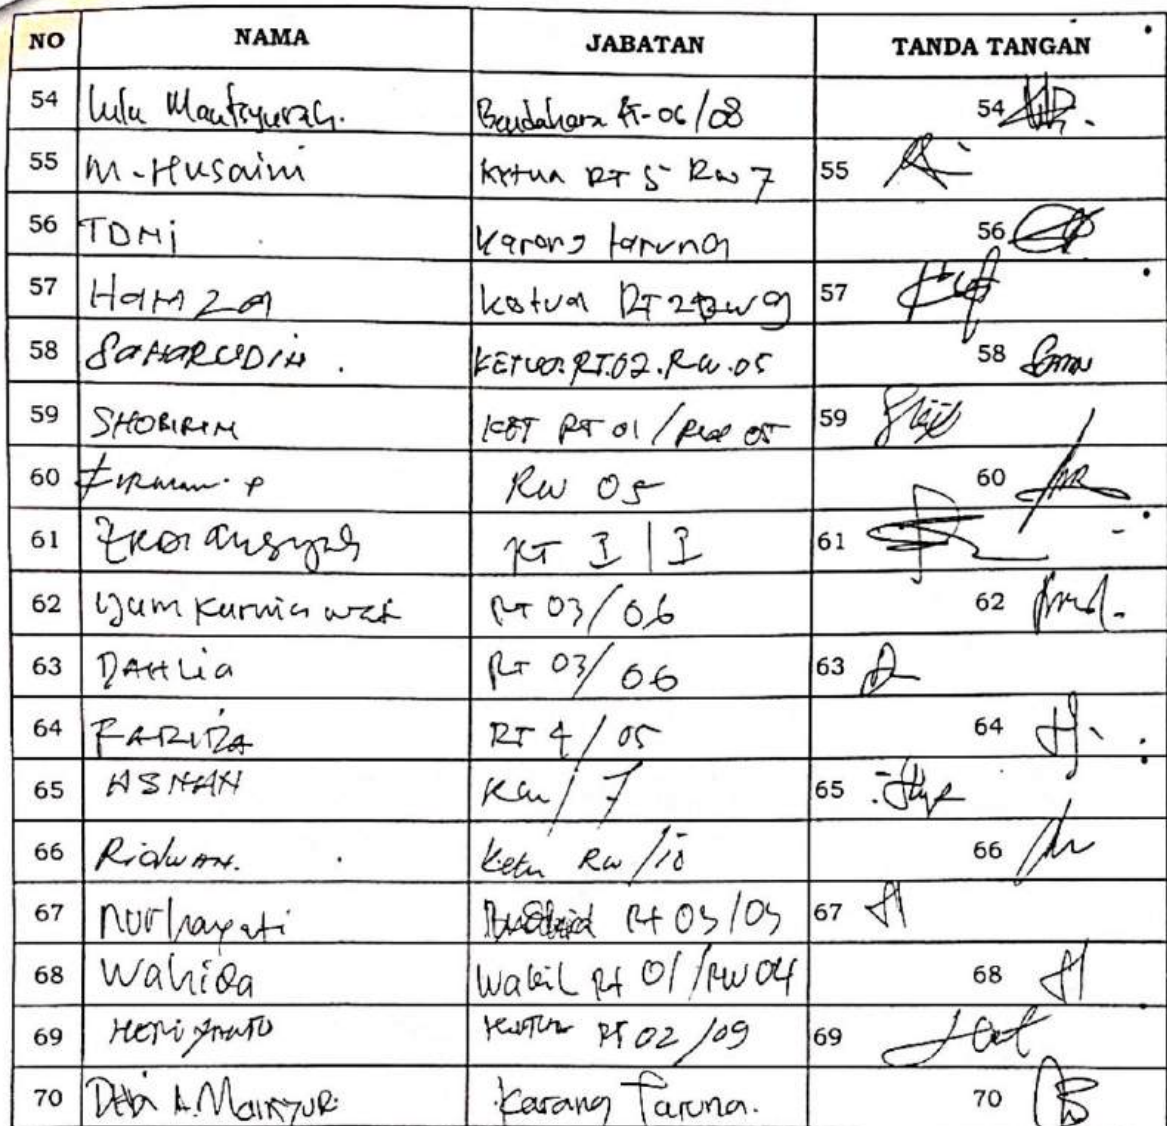 NO NAMA JABATAN TANDA TANGAN
54 Lulu Bendahara RT-06/08 54
55 M-Husaini Ketua RT 5 RW 7 55
56 TOMi Karang taruna 56
57 HaMZa Ketua RT 2 RW 9 57
58 SaHARUDIN. KETUA RT.02.RW.05 58
59 SHOBIRIN KET RT 01/RW 05 59
60 Firman. P RW 05 60
61 RT I/I 61
62 Yum Kurniawati RT 03/06 62
63 DAHLia RT 03/06 63
64 FARIDA RT 4/05 64
65 ASNAH RW/7 65
66 Ridwan. Ketu RW/10 66
67 Nurhayati RT 03/03 67
68 Wahida Wakil Rt 01/RW 04 68
69 HERiyANTO RT 02/09 69
70 A. Mansyur Karang Taruna. 70